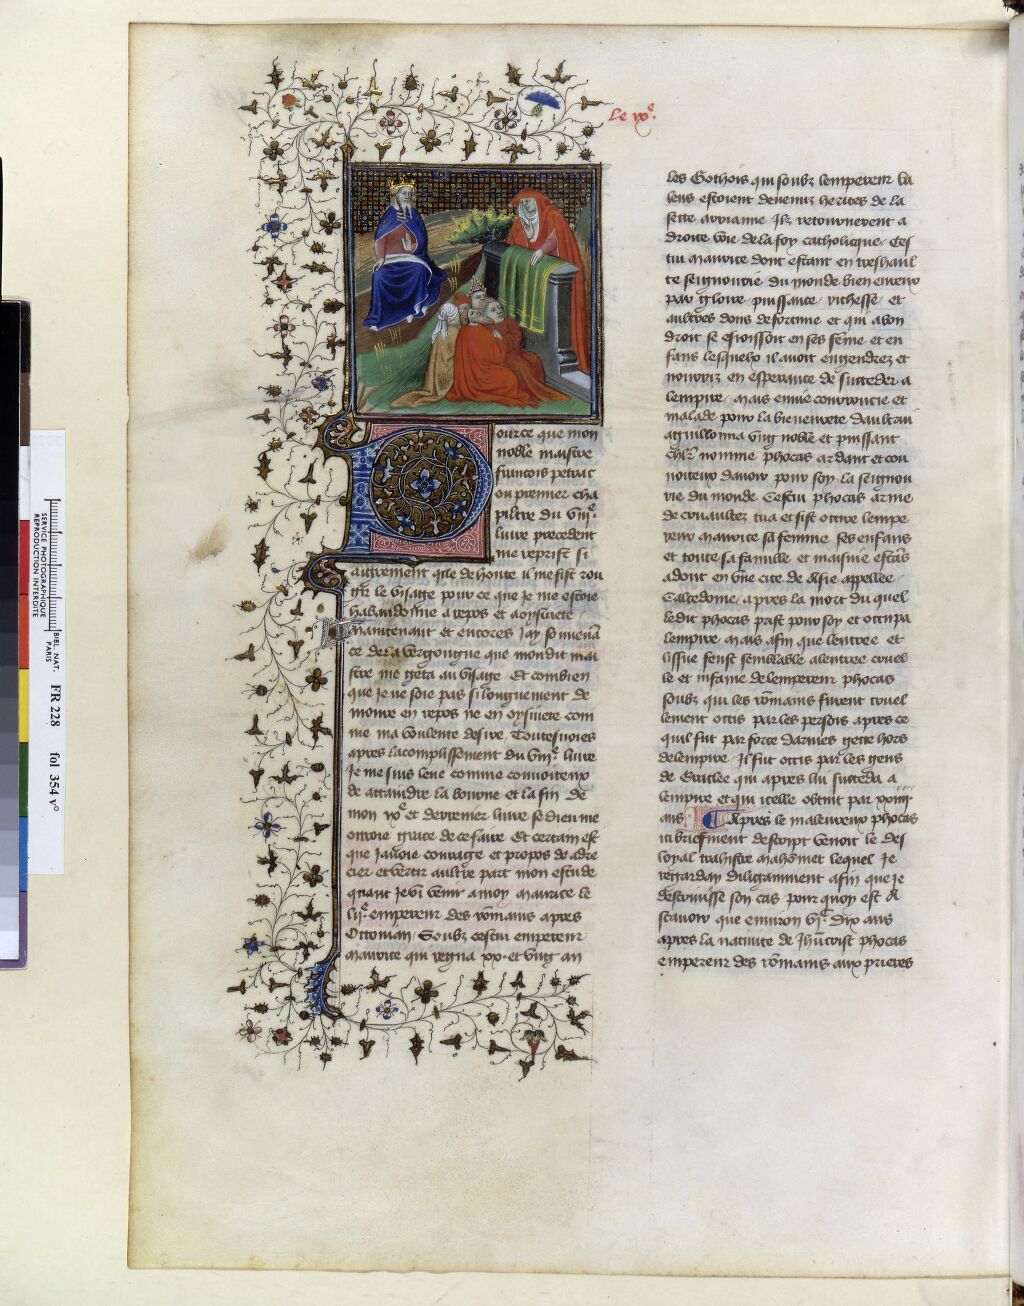 Le ixe.
ource que mon
noble maistre
francois petrac
ou premier cha
pittre du viije
livre precedent
me reprist si
aigrement q̄ile de honte il me fist rou
gir le visage pour ce que je me estoie
habandonne a repos et a oysivete
maintenant et encores jay souvenā
ce de la vergongne que mondit mai
stre me geta au visage. Et combien
que je ne soie pas si longuement de
moure en repos ne en oysivete com
me ma voulente desire. Toutesvoies
apres lacomplissement du viije livre
Je me suis leve comme convoiteux
de attaindre la bourne et la fin de
mon ixe et derrenier livre se dieu me
ottroie grace de ce faire. Et certain est
que javoie courage et propos de adre
cier et vertir aultre part mon estude
quant je vi venir a moy maurice le
lije empereur des rōmains apres
Ottoman. Soubz cestui empereur
maurice qui regna xx. et ung an
les Gothois qui soubz lempereur va
lens estoient devenuz herites de la
secte arrianne Ilz retournerent a
droite voie de la foy catholicque. Ces
tui maurice dont estant en treshaul
te seignourie du monde bien eureux
par gloire puissance richesse et
aultres dons de fortune et qui a bon
droit se esioissoit en ses fēme et en
fans lesquelx il avoit engendrez et
nourriz en esperance de succeder a
lempire. mais envie courroucie et
malade pour la bieneurete daultrui
aguillonna ung noble et puissant
chlr̄ nomme phocas ardant et cou
voiteux davoir pour soy la seignou
rie du monde Cestui phocas arme
de couaultez tua et fist occire lempe
reur maurice sa femme ses enfans
et toute sa famille et maisnie estās
adont en une cite de Asie appellee
Calcedoine. apres la mort du quel
ledit phocas prist pour soy et occupa
lempire mais afin que lentree et
lissue feust semblable a lentree cruel
le et infame de lempereur phocas
soubz qui les rōmains furent cruel
lement occis par les persois apres ce
quil fut par force darmes gette hors
de lempire. Il fut occis par les gens
de Eracle qui apres lui succeda a
lempire et qui icelle obtint par xxiiij.
ans Apres le maleureux phocas
icy briefment descript venoit le des
loyal trahistre mahōmet lequel je
regarday diligamment afin que je
descrivisse son cas pour quoy est A
scavoir que environ vic dix ans
apres la nativite de Jhūcrist phocas
empereur des rōmains aux prieres
SERVICE PHOTOGRAPHIQUE
REPRODUCTION INTERDITE
BIBL. NAT.
PARIS
FR 228 fol 354 v°